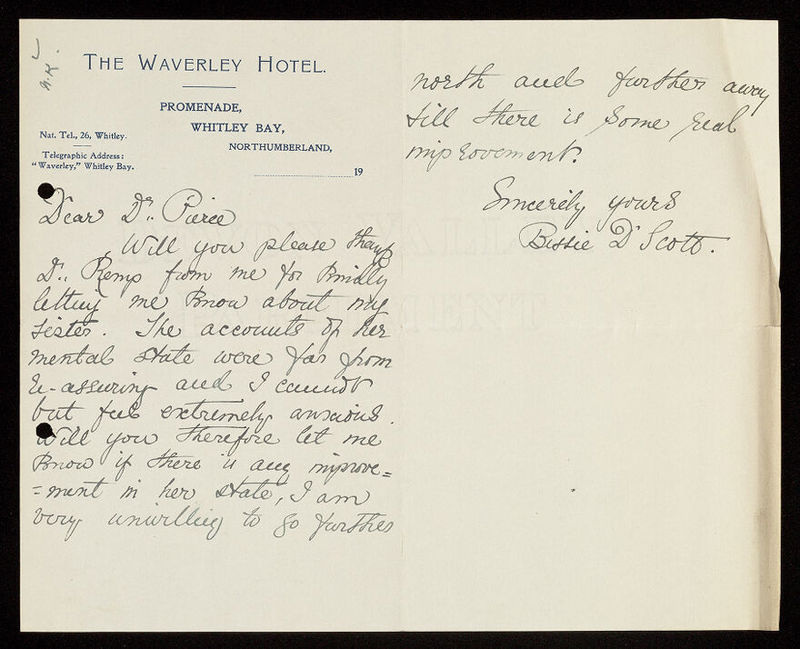 THE WAVERLEY HOTEL.
PROMENADE,
WHITLEY BAY,
NORTHUMBERLAND,
Nat. Tel., 26, Whitley.
Telegraphic Address:
"Waverley," Whitley Bay.
19
Dear Dr. Pierce
Will you please thank
Dr. Kemp from me for kindly
letting me know about my
sister. The accounts of her
mental state were far from
re-assuring and I cannot
but feel extremely anxious.
Will you therefore let me
know if there is any improve=
=ment in her state, I am
very unwilling to go further
north and further away
till there is some real
improvement.
Sincerely yours
Bessie D Scott.